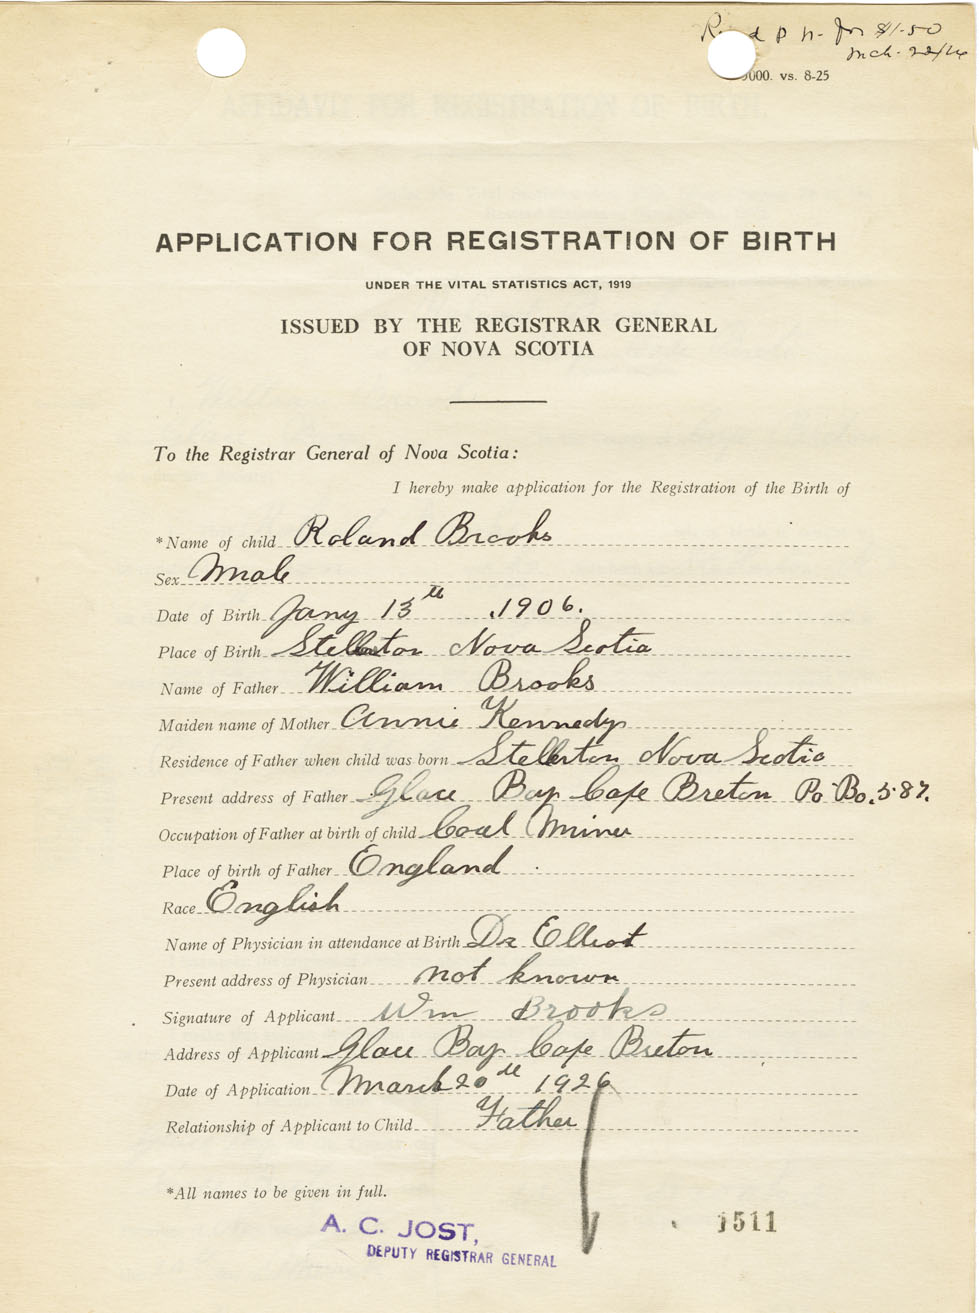 for $1.50
Mch. 22/26
000. vs. 8-25
APPLICATION FOR REGISTRATION OF BIRTH
UNDER THE VITAL STATISTICS ACT, 1919
ISSUED BY THE REGISTRAR GENERAL
OF NOVA SCOTIA
To the Registrar General of Nova Scotia:
I hereby make application for the Registration of the Birth of
*Name of child Roland Brooks
Sex Male
Date of Birth Jany 13th 1906.
Place of Birth Stellarton Nova Scotia
Name of Father William Brooks
Maiden name of Mother Annie Kennedy
Residence of Father when child was born Stellerton Nova Scotia
Present address of Father Glace Bay Cape Breton Po Bo. 587.
Occupation of Father at birth of child Coal Miner
Place of birth of Father England
Race English
Name of Physician in attendance at Birth Dr Elliot
Present address of Physician not known
Signature of Applicant Wm Brooks
Address of Applicant Glace Bay Cape Breton
Date of Application March 20th 1926
Relationship of Applicant to Child Father
*All names to be given in full.
A. C. JOST,
DEPUTY REGISTRAR GENERAL
1511